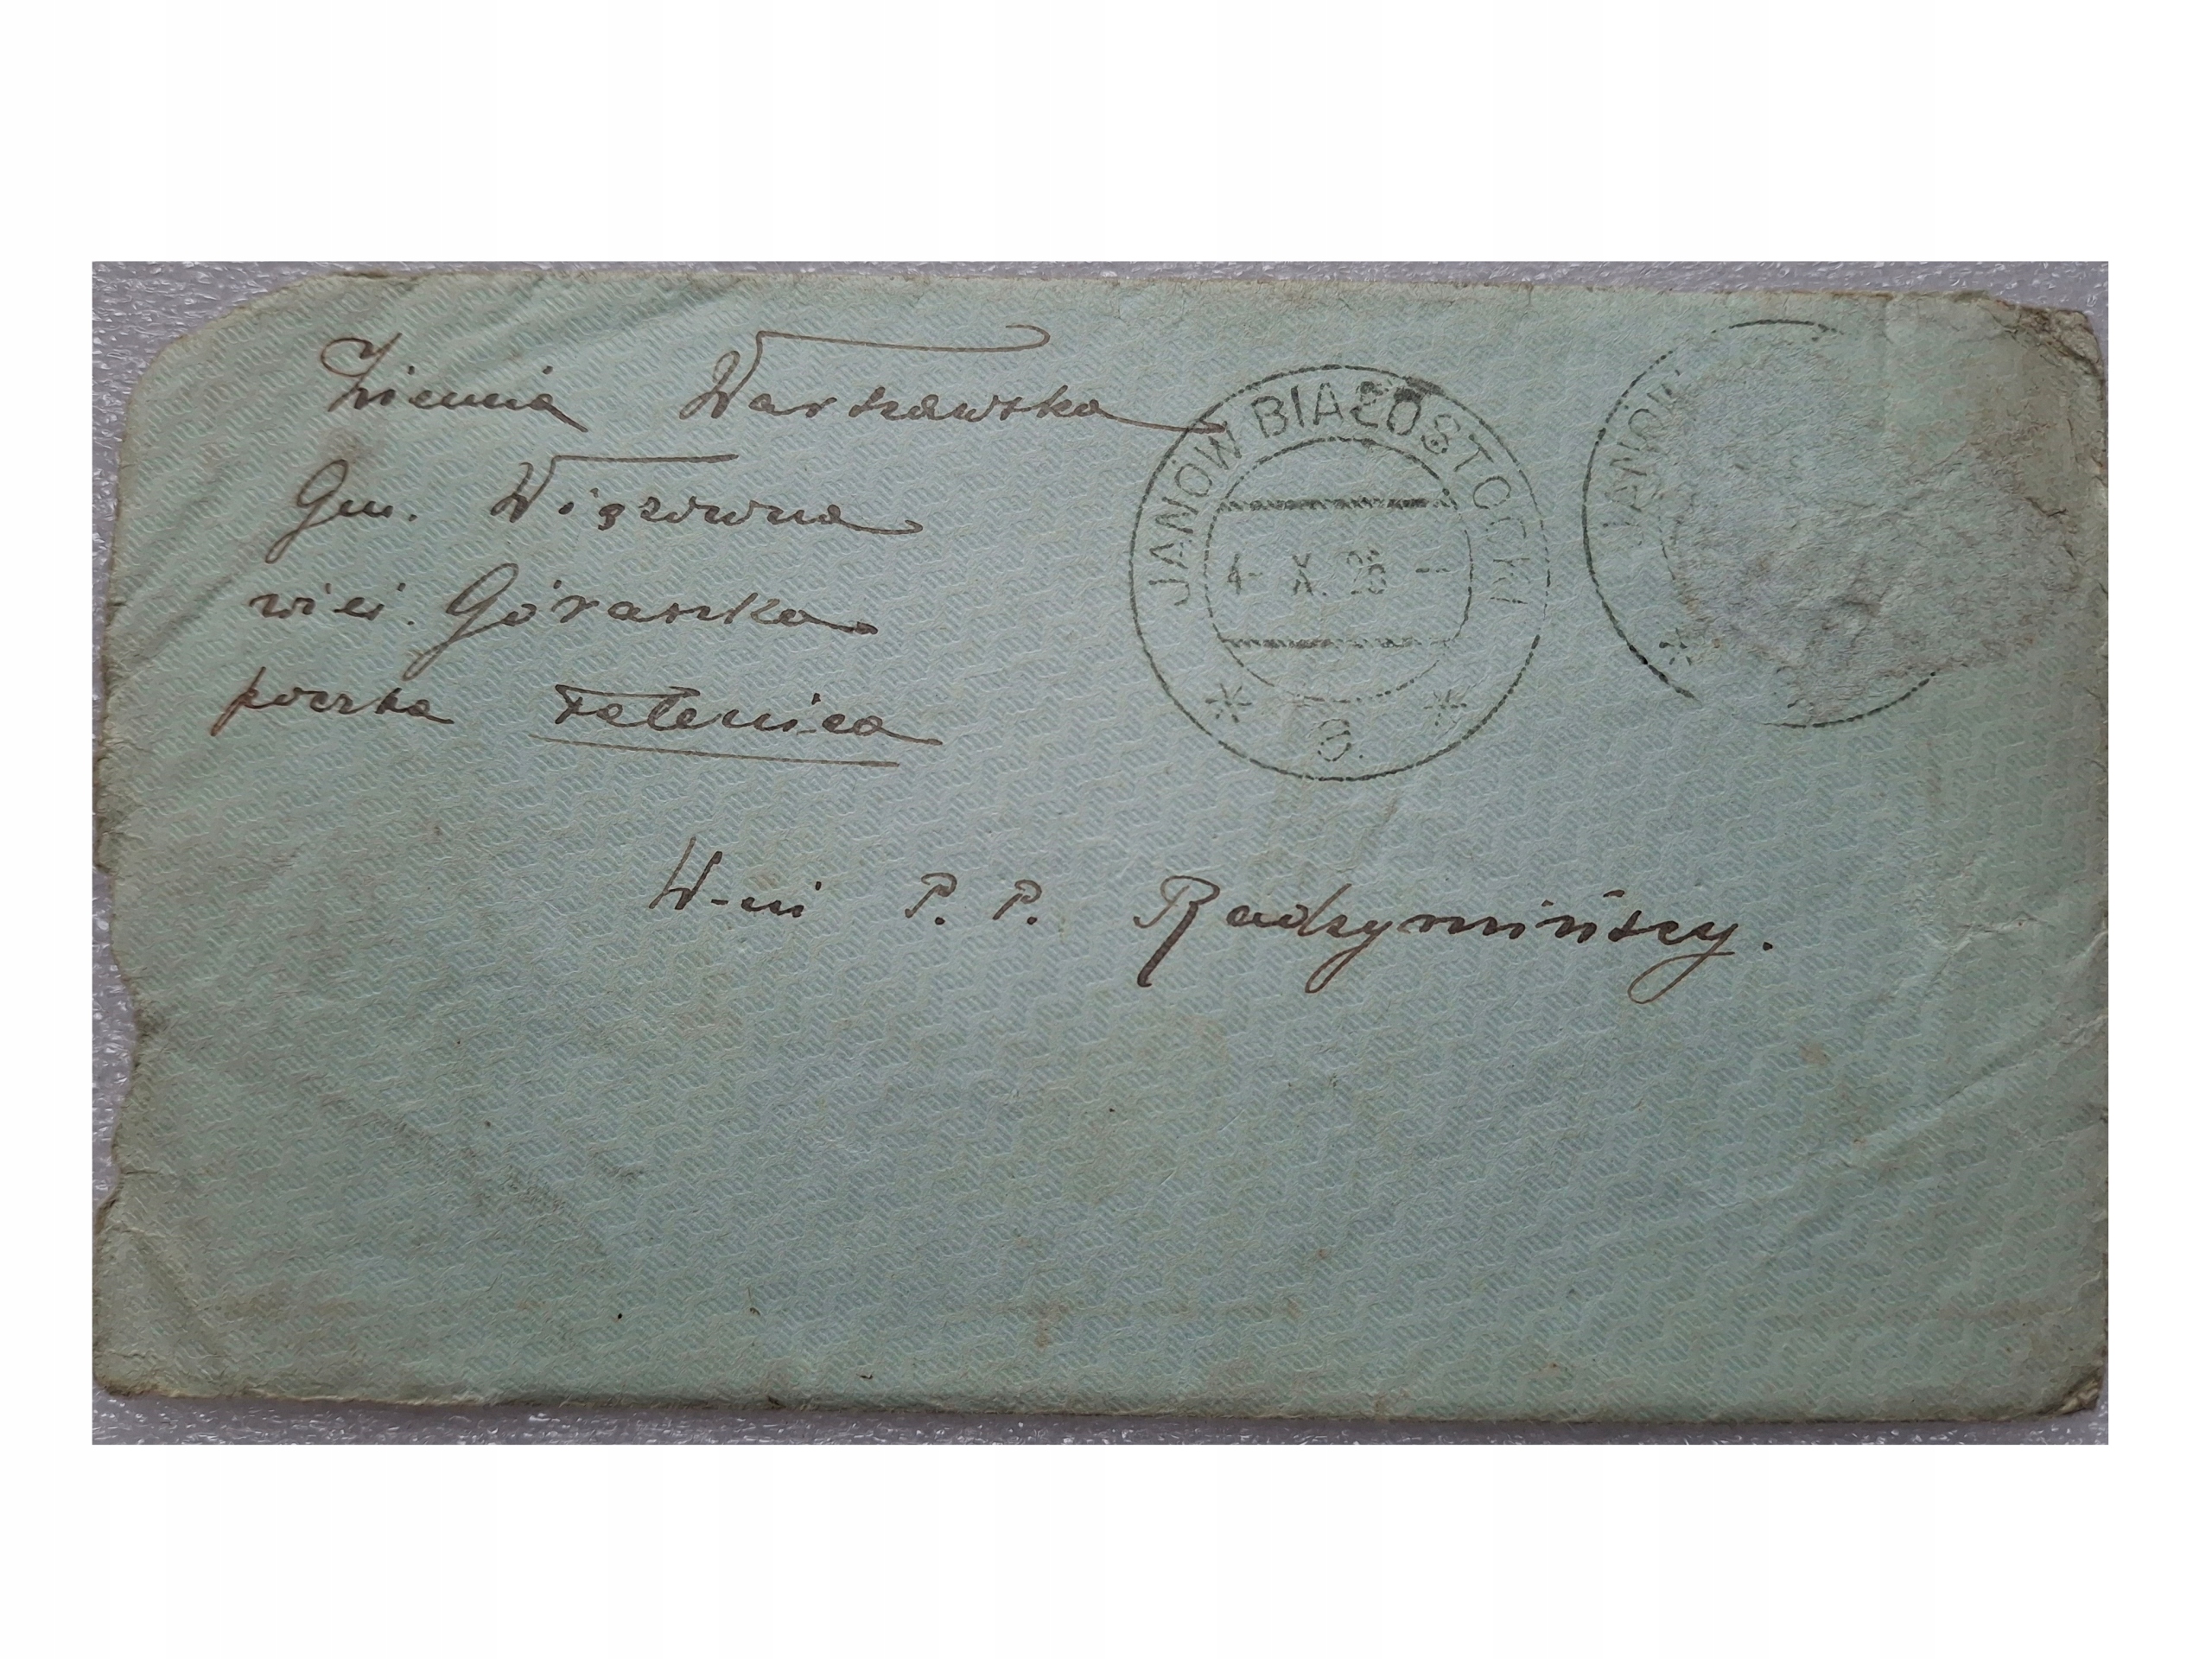 Ziemia Warszawska
Gm. Wiązowna
wieś. Góraszka
poczta Falenica
JANÓW BIAŁOSTOCKI
4 X. 26 --
* a. *
JANÓW
*
W-ni P. P. Radzymińscy.